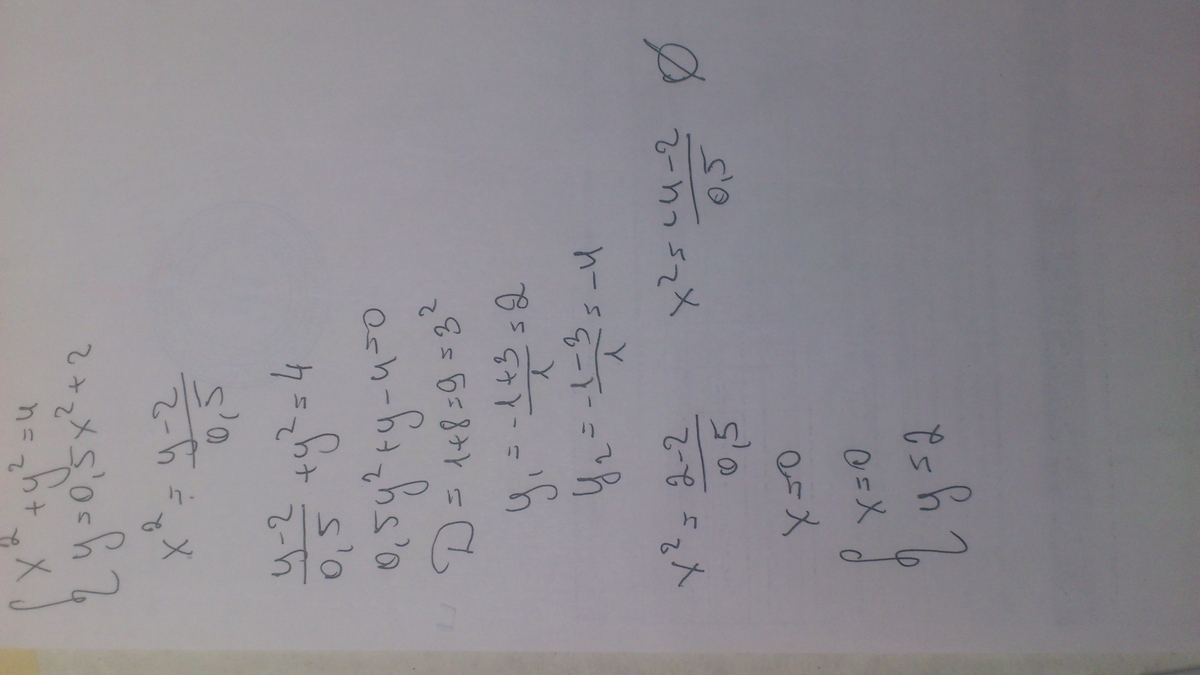 { x² + y² = 4
{ y = 0,5x² + 2
x² = (y-2)/0,5
(y-2)/0,5 + y² = 4
0,5y² + y - 4 = 0
D = 1+8 = 9 = 3²
y₁ = (-1+3)/1 = 2
y₂ = (-1-3)/1 = -4
x² = (2-2)/0,5 x² = (-4-2)/0,5 ∅
x = 0
{ x = 0
{ y = 2